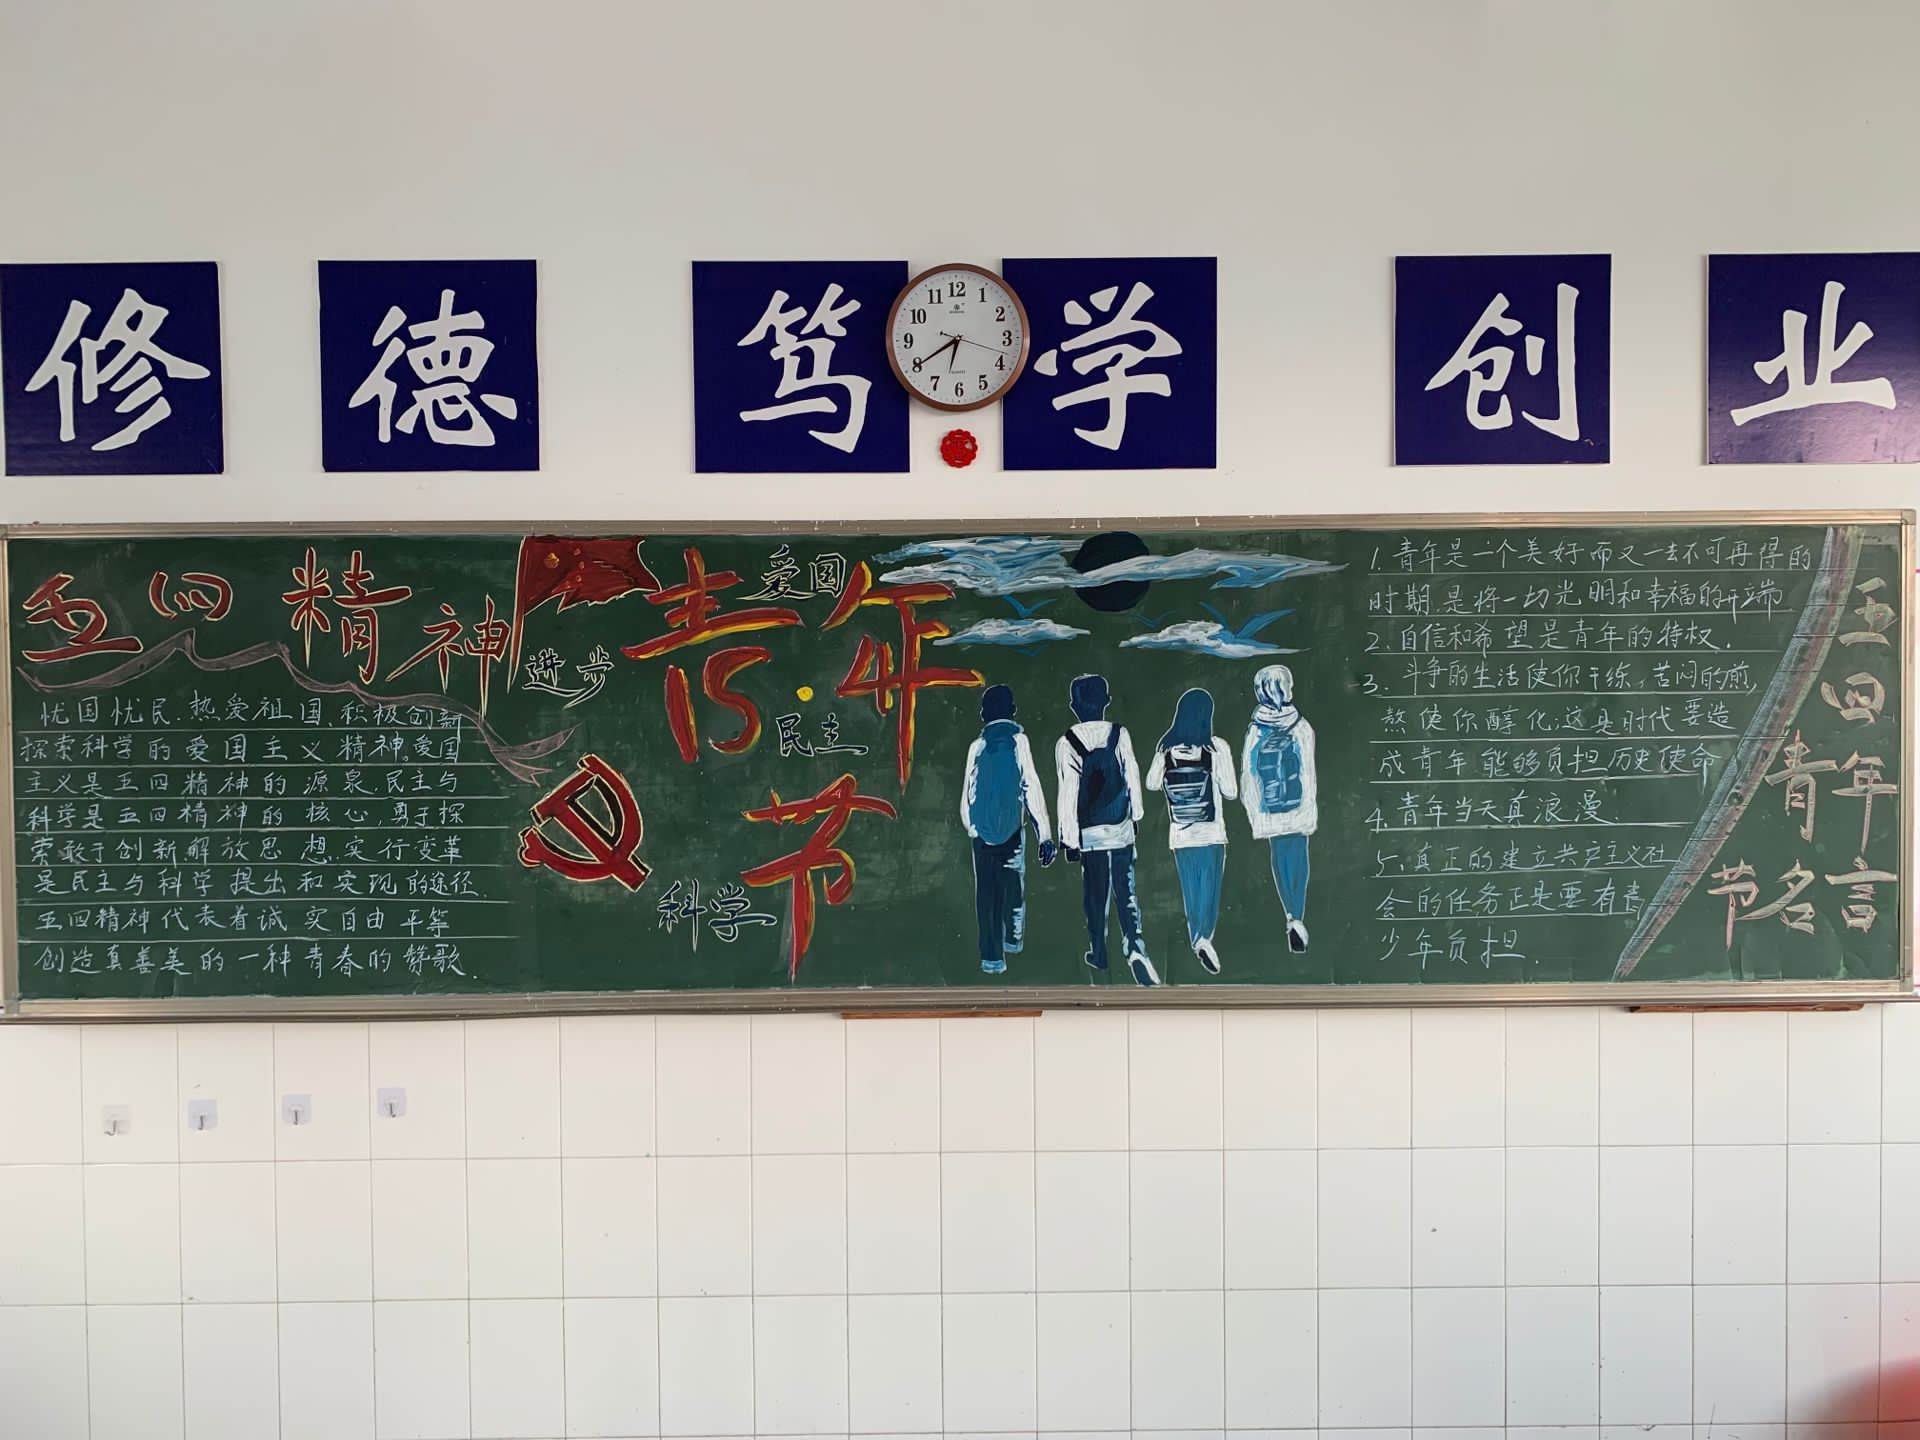 修 德 笃 学 创 业
11 12 1
10 2
9 3
8 4
7 6 5
五四精神
忧国忧民.热爱祖国.积极创新
探索科学的爱国主义精神。爱国
主义是五四精神的源泉,民主与
科学是五四精神的核心,勇于探
索敢于创新解放思想.实行变革
是民主与科学提出和实现的途径.
五四精神代表着诚实自由平等
创造真善美的一种青春的赞歌.
进步
爱国
青年
15·4
民主
节
科学
1.青年是一个美好而又一去不可再得的
时期.是将一切光明和幸福的开端
2.自信和希望是青年的特权.
3.斗争的生活使你干练,苦闷的煎
熬使你醇化,这是时代要造
成青年能够负担历史使命
4.青年当天真浪漫.
5.真正的建立共产主义社
会的任务正是要有青
少年负担.
五四
青年
节名言